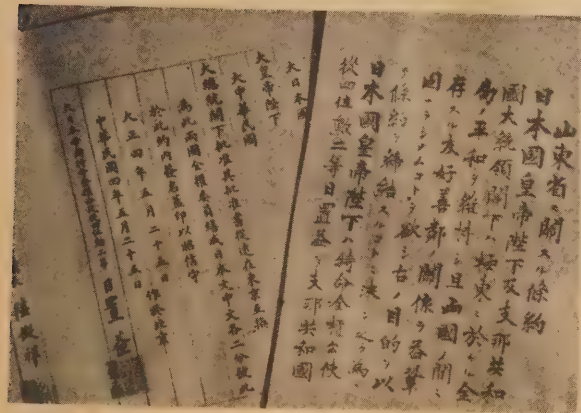 山東省ニ關スル條約
日本國皇帝陛下及支那共和
國大統領閣下ハ極東ニ於ケル全
局ノ平和ヲ維持シ且両國ノ間ニ
存スル友好善鄰ノ關係ヲ益鞏
固ナラシメムコトヲ欲シ右ノ目的ヲ以
テ條約ヲ締結スルコトニ決シ之カ為ニ
日本國皇帝陛下ハ特命全權公使
從四位勳二等日置益ヲ支那共和國
大日本國
大皇帝陛下
大中華民國
大總統閣下批准其批准書從速在東京互換
為此両國全權委員繕成日本文中文各二分彼此
於此約內簽名蓋印以昭信守
大正四年五月二十五日 作於北京
中華民國四年五月二十五日
大日本帝國特命全權公使從四位勳二等 日置益
陸徵祥